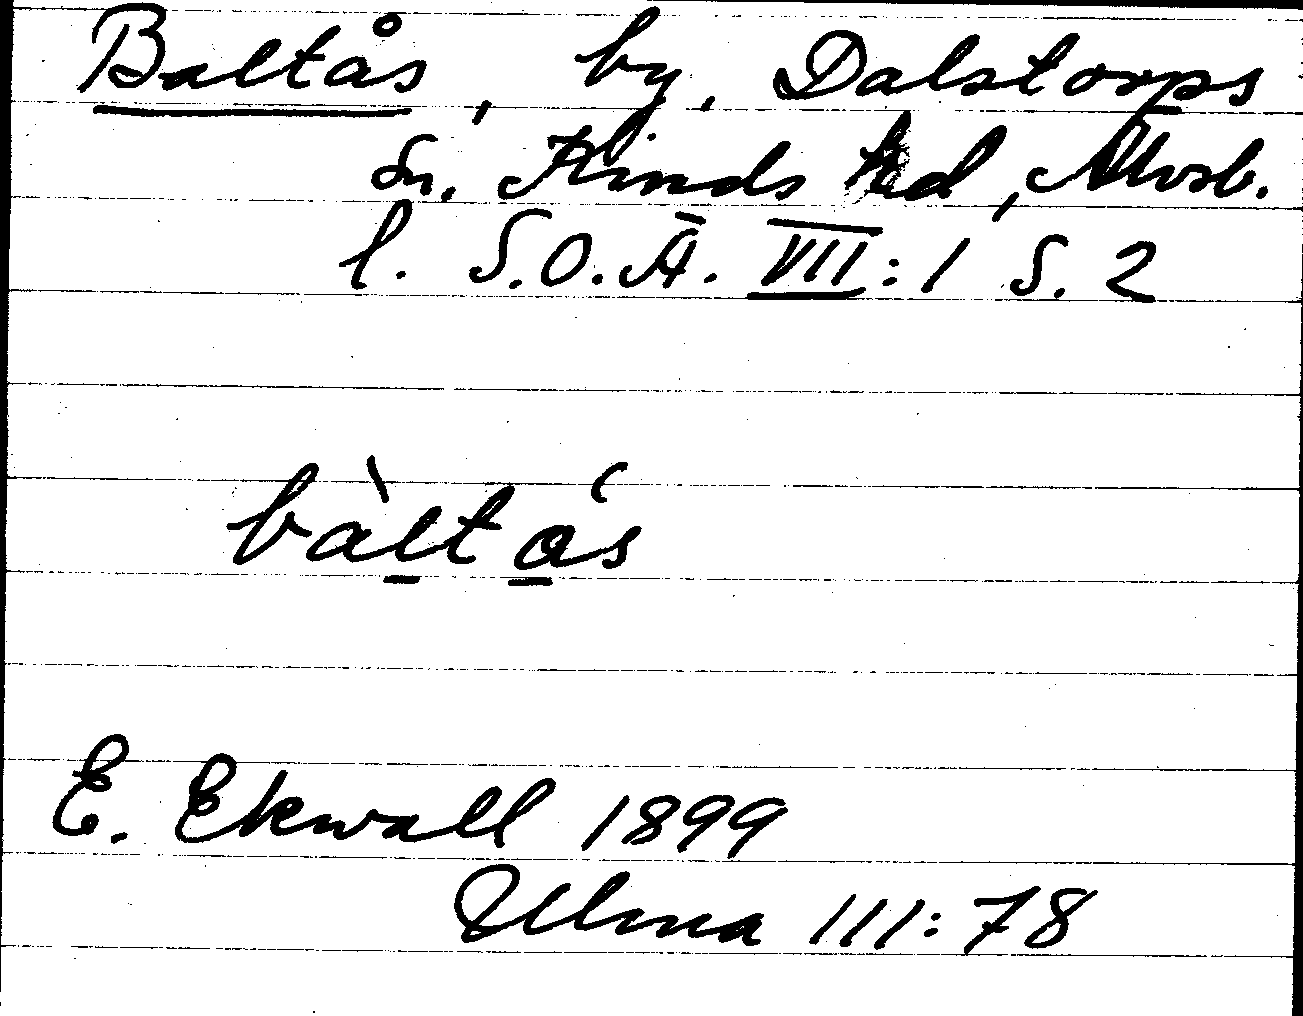 Baltås, by, Dalstorps
sn. Kinds hd, Älvsb.
l. S.O.Ä. VII:1 S. 2
bàltás
E. Ekwall 1899
Ulma III:78